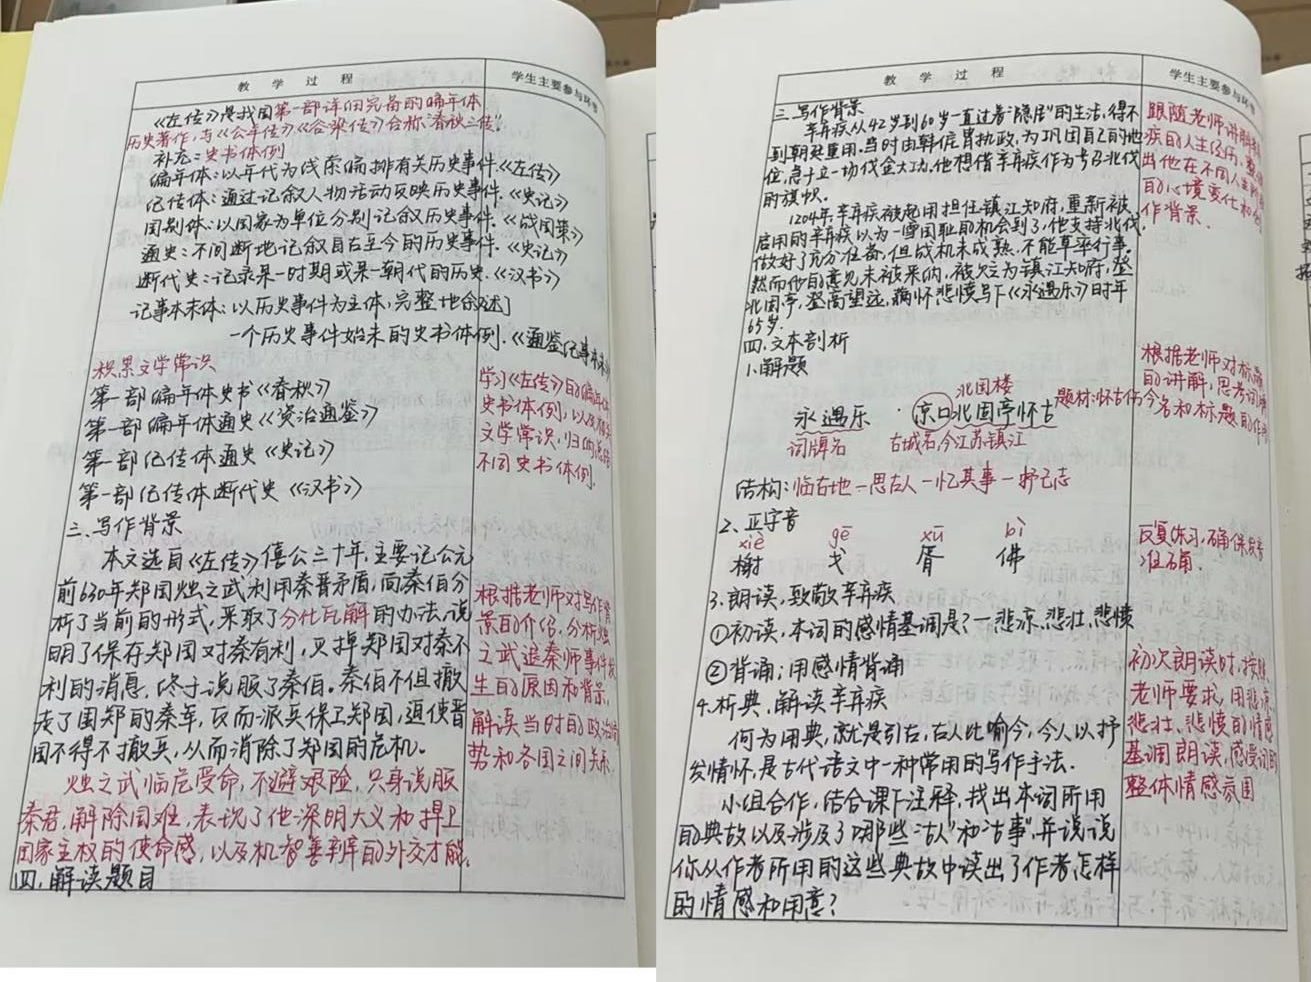 教 学 过 程
学生主要参与环节
《左传》是我国第一部详细完备的编年体
历史著作,与《公羊传》《谷梁传》合称"春秋三传".
补充:史书体例
编年体:以年代为线索编排有关历史事件.《左传》
纪传体:通过记叙人物活动反映历史事件.《史记》
国别体:以国家为单位分别记叙历史事件.《战国策》
通史:不间断地记叙自古至今的历史事件.《史记》
断代史:记录某一时期或某一朝代的历史.《汉书》
记事本末体:以历史事件为主体,完整地叙述
一个历史事件始末的史书体例.《通鉴纪事本末
积累文学常识
第一部编年体史书《春秋》
第一部编年体通史《资治通鉴》
第一部纪传体通史《史记》
第一部纪传体断代史《汉书》
学习《左传》的编年体
史书体例,以及相关
文学常识,归纳总结
不同史书体例.
三、写作背景
本文选自《左传》僖公三十年,主要记公元
前630年郑国烛之武利用秦晋矛盾,向秦伯分
析了当前的形式,采取了分化瓦解的办法,说
明了保存郑国对秦有利,灭掉郑国对秦不
利的消息,终于说服了秦伯。秦伯不但撤
走了围郑的秦军,反而派兵保卫郑国,迫使晋
国不得不撤兵,从而消除了郑国的危机。
烛之武临危受命,不避艰险,只身说服
秦君,解除国难,表现了他深明大义和捍卫
国家主权的使命感,以及机智善辩的外交才能.
四.解读题目
根据老师对写作背
景的介绍,分析烛
之武退秦师事件发
生的原因和背景,
解读当时的政治形
势和各国之间关系.
教 学 过 程
学生主要参与环节
三.写作背景
辛弃疾从42岁到60岁一直过着"隐居"的生活,得不
到朝廷重用.当时由韩侂胄执政,为巩固自己的地
位,急于立一场伐金大功.他想借辛弃疾作为号召北伐
的旗帜.
1204年,辛弃疾被起用担任镇江知府,重新被
启用的辛弃疾以为一雪国耻的机会到了,他支持北伐,
做好了充分准备,但战机未成熟,不能草率行事.
然而他的意见未被采纳,被贬为镇江知府,登
北固亭,登高望远,满怀悲愤写下《永遇乐》时年
65岁.
四.文本剖析
1.解题
北固楼
永遇乐 · 京口北固亭怀古 题材:怀古伤今
词牌名 古城名,今江苏镇江
结构:临古地—思古人—忆其事—抒己志
2、正字音
xiè gē xū bì
榭 戈 胥 佛
3.朗读,致敬辛弃疾
①初读,本词的感情基调是?—悲凉、悲壮、悲愤
②背诵:用感情背诵
4.析典,解读辛弃疾
何为用典,就是引古,古人比喻今,今人以抒
发情怀,是古代语文中一种常用的写作手法.
小组合作,结合课下注释,找出本词所用
的典故以及涉及了哪些"古人"和"古事",并说说
你从作者所用的这些典故中读出了作者怎样
的情感和用意?
跟随老师讲解
疾的人生经历,
出他在不同人生
的心境变化和创
作背景.
根据老师对标题
的讲解,思考词牌
名和标题的作用
反复练习,确保发音
准确.
初次朗读时,按照
老师要求,用悲凉、
悲壮、悲愤的情感
基调朗读,感受词的
整体情感氛围